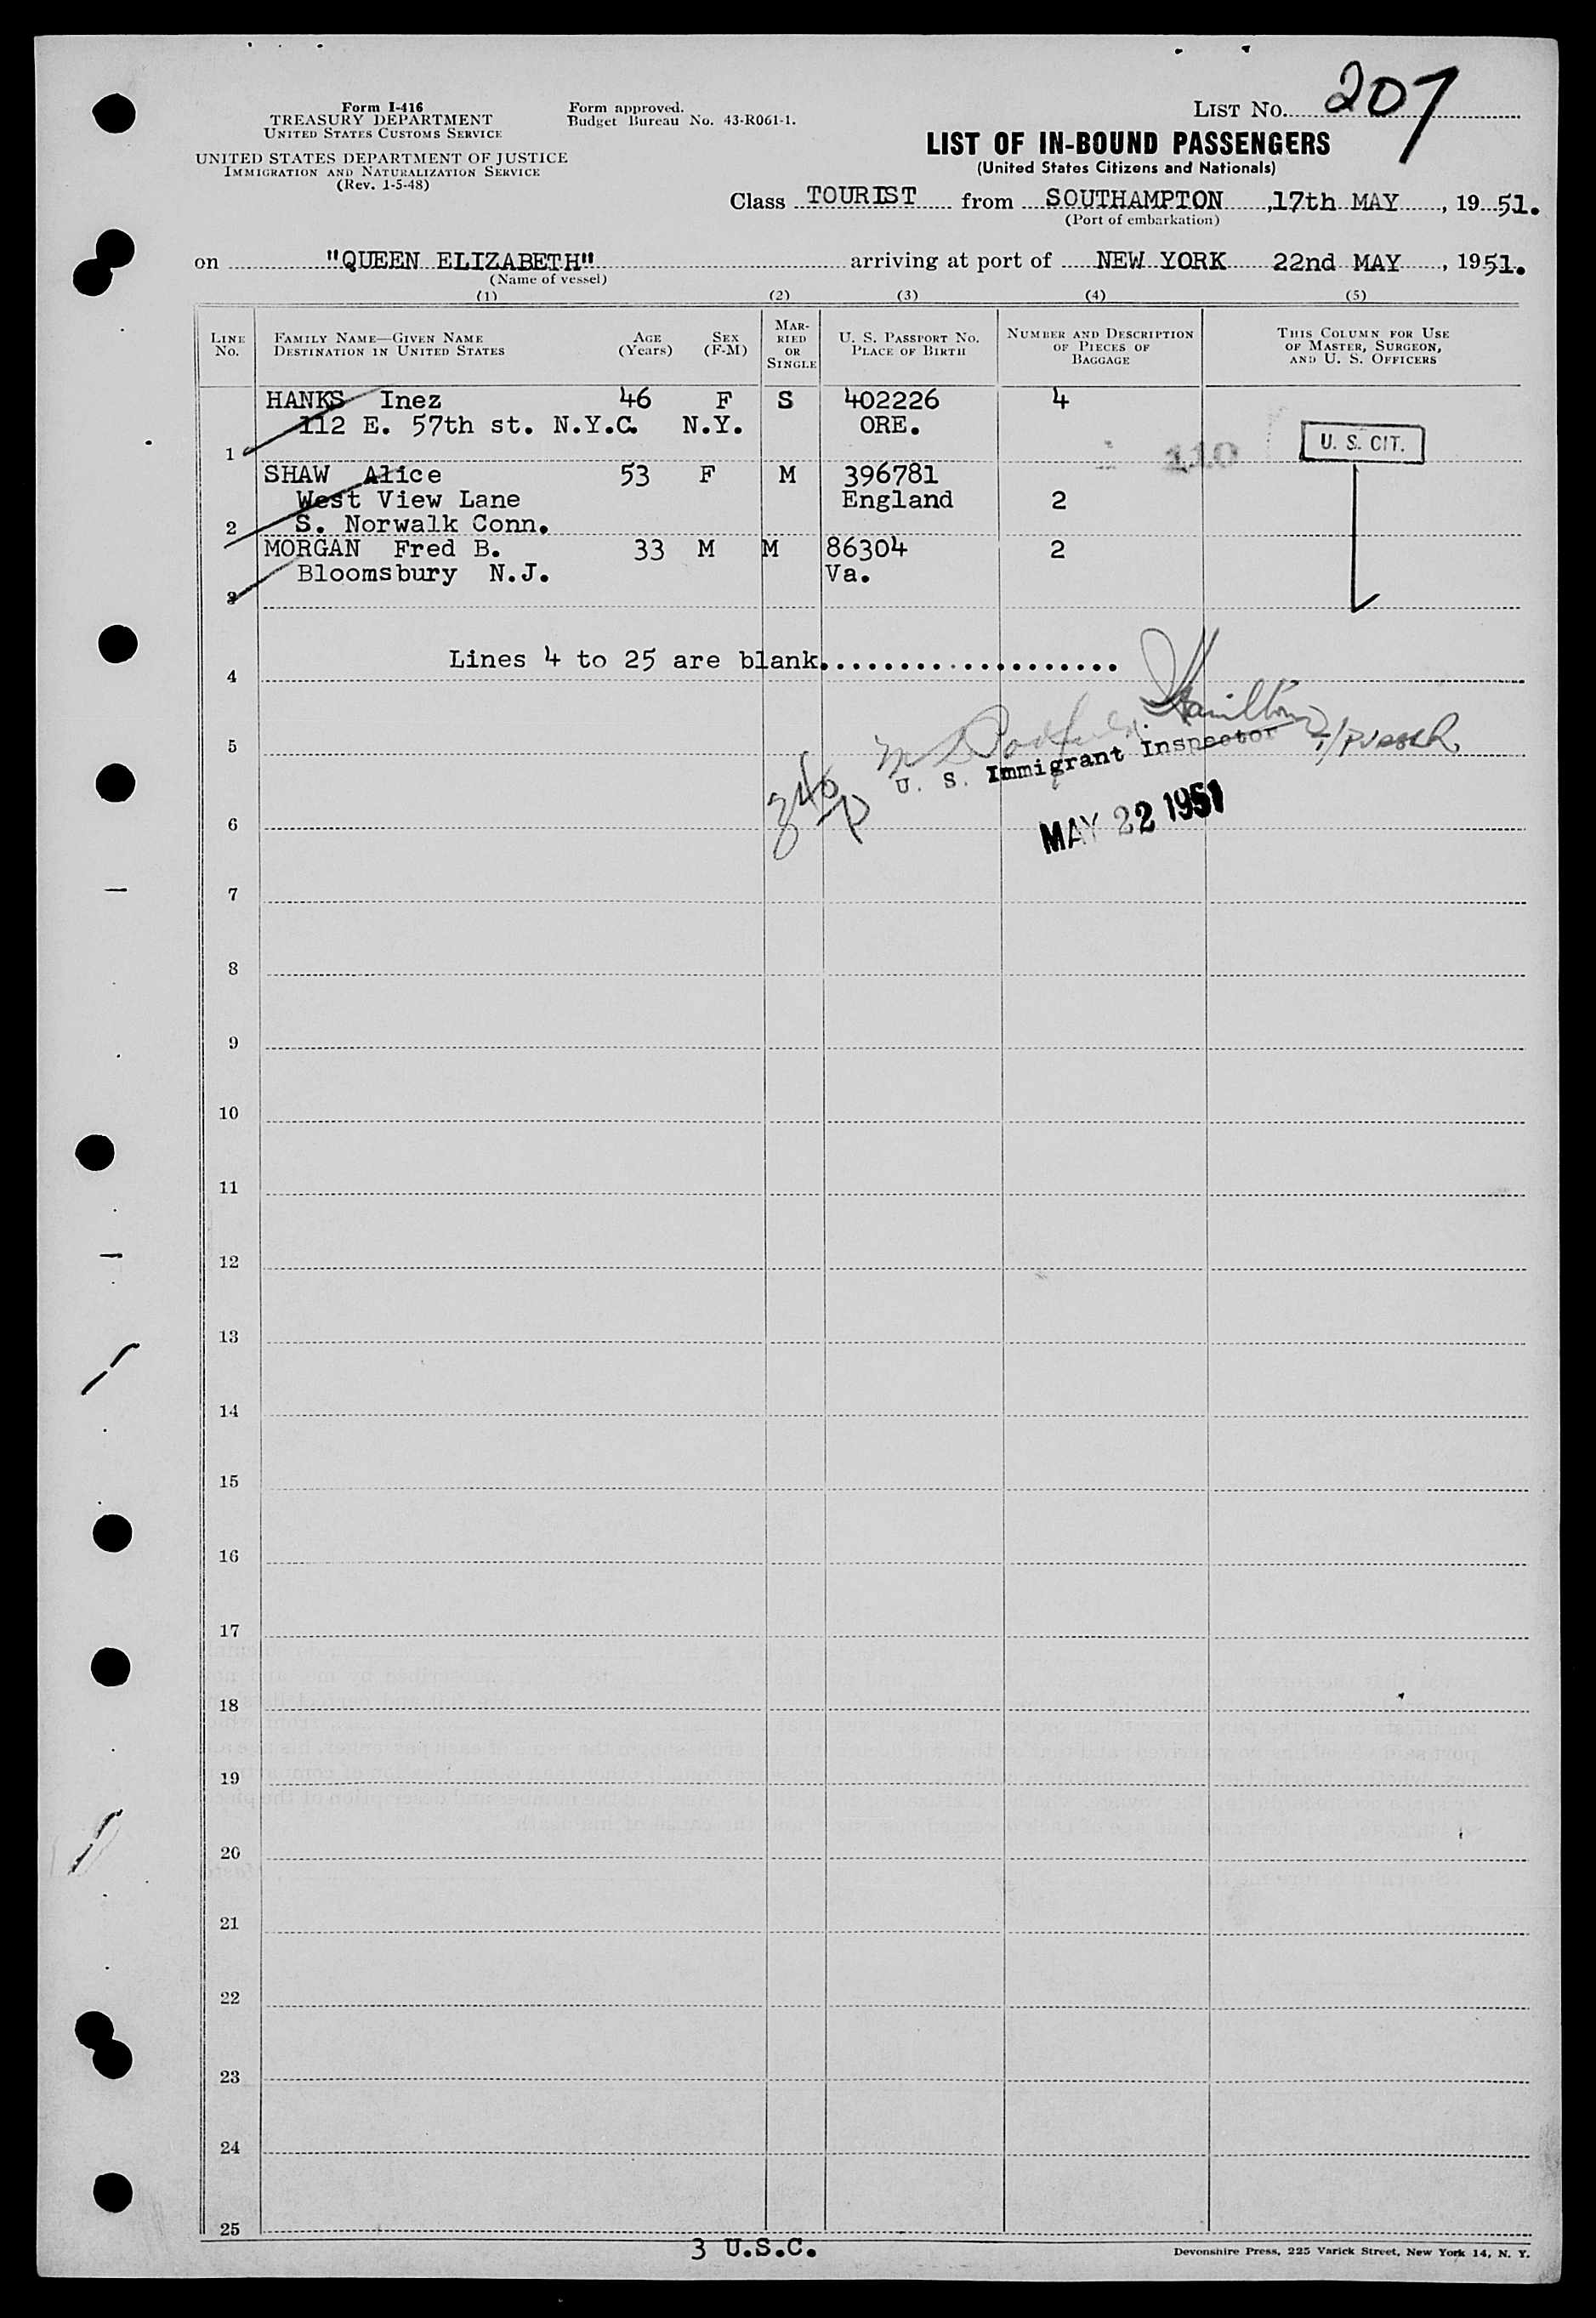 Form I-416
TREASURY DEPARTMENT
UNITED STATES CUSTOMS SERVICE
UNITED STATES DEPARTMENT OF JUSTICE
IMMIGRATION AND NATURALIZATION SERVICE
(Rev. 1-5-48)
Form approved.
Budget Bureau No. 43-R061-1.
LIST No. 207
LIST OF IN-BOUND PASSENGERS
(United States Citizens and Nationals)
Class TOURIST from SOUTHAMPTON, 17th MAY, 1951.
(Port of embarkation)
on "QUEEN ELIZABETH" arriving at port of NEW YORK 22nd MAY, 1951.
(Name of vessel)
(1) (2) (3) (4) (5)
LINE No.
FAMILY NAME—GIVEN NAME
DESTINATION IN UNITED STATES
AGE (Years)
SEX (F-M)
MARRIED OR SINGLE
U. S. PASSPORT NO.
PLACE OF BIRTH
NUMBER AND DESCRIPTION OF PIECES OF BAGGAGE
THIS COLUMN FOR USE OF MASTER, SURGEON, AND U. S. OFFICERS
HANKS Inez 46 F S 402226 4
112 E. 57th st. N.Y.C. N.Y. ORE.
1
110
U. S. CIT.
SHAW Alice 53 F M 396781
West View Lane England 2
2 S. Norwalk Conn.
MORGAN Fred B. 33 M M 86304 2
Bloomsbury N.J. Va.
3
Lines 4 to 25 are blank...................
4
Hamilton
5
U. S. Immigrant Inspector
MAY 22 1951
6
7
8
9
10
11
12
13
14
15
16
17
18
19
20
21
22
23
24
25
3 U.S.C.
Devonshire Press, 225 Varick Street, New York 14, N. Y.